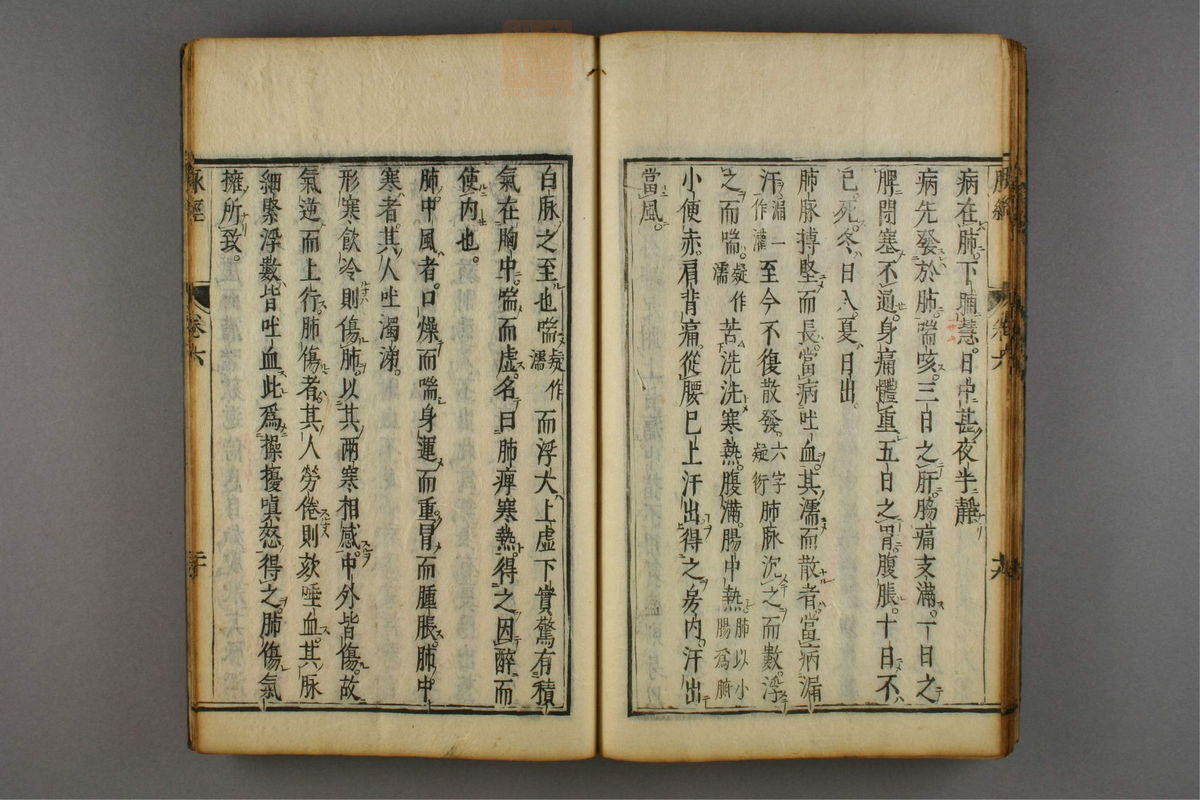 病在肺下晡慧日中甚夜半靜
病先發於肺喘咳三日之肝脇痛支滿一日之
脾閉塞不通身痛體重五日之胃腹脹十日不
已死冬日入夏日出
肺脉搏堅而長當病吐血其濡而散者當病漏
汗漏一作灌至今不復散發六字疑衍肺脉沉之而數浮
之而喘疑作濡苦洗洗寒熱腹滿腸中熱肺以小腸爲腑
小便赤肩背痛從腰已上汗出得之房內汗出
當風
白脉之至也喘疑作濡而浮大上虛下實驚有積
氣在胸中喘而虛名曰肺痺寒熱得之因醉而
使內也
肺中風者口燥而喘身運而重冒而腫脹肺中
寒者其人吐濁涕
形寒飲冷則傷肺以其兩寒相感中外皆傷故
氣逆而上行肺傷者其人勞倦則欬唾血其脉
細緊浮數皆吐血此爲操擾嗔怒得之肺傷氣
擁所致
脉經 卷六